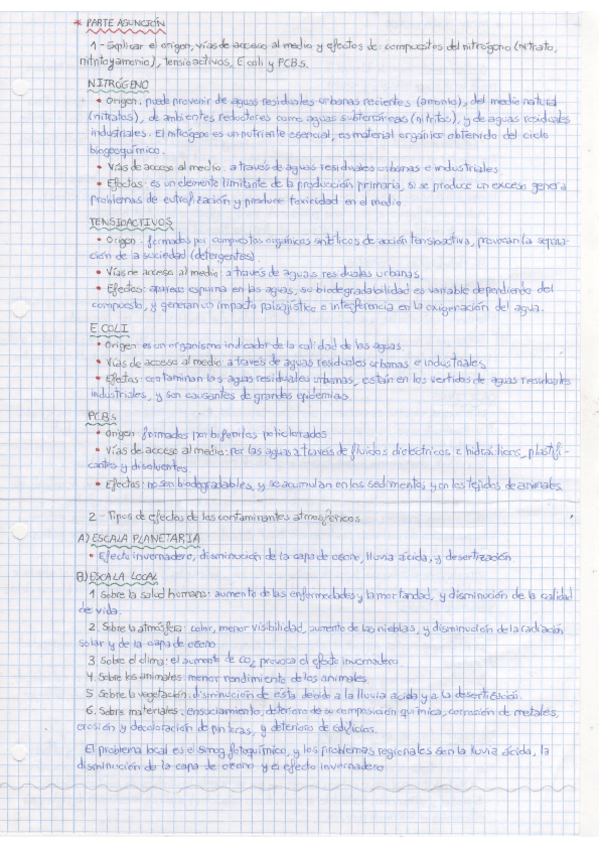 * PARTE ASUNCIÓN
1 - Explicar el origen, vías de acceso al medio y efectos de: compuestos del nitrógeno (nitrato,
nitrito y amonio), tensioactivos, E coli y PCBs.
NITRÓGENO
• Origen: puede provenir de aguas residuales urbanas recientes (amonio), del medio natural
(nitratos), de ambientes reductores como aguas subterráneas (nitritos), y de aguas residuales
industriales. El nitrógeno es un nutriente esencial, es material orgánico obtenido del ciclo
biogeoquímico.
• Vías de acceso al medio: a través de aguas residuales urbanas e industriales
• Efectos: es un elemento limitante de la producción primaria, si se produce un exceso genera
problemas de eutrofización y produce toxicidad en el medio.
TENSIOACTIVOS
• Origen: formados por compuestos orgánicos sintéticos de acción tensioactiva, provocan la separa-
ción de la suciedad (detergentes).
• Vías de acceso al medio: a través de aguas residuales urbanas.
• Efectos: aparece espuma en las aguas, su biodegradabilidad es variable dependiendo del
compuesto, y generan un impacto paisajístico e interferencia en la oxigenación del agua.
E COLI
• Origen: es un organismo indicador de la calidad de las aguas.
• Vías de acceso al medio: a través de aguas residuales urbanas e industriales.
• Efectos: contaminan las aguas residuales urbanas, están en los vertidos de aguas residuales
industriales, y son causantes de grandes epidemias.
PCBs
• Origen: formados por bifenilos policlorados
• Vías de acceso al medio: por las aguas a través de fluidos dieléctricos, e hidráulicos, plastifi-
cantes y disolventes.
• Efectos: no son biodegradables, y se acumulan en los sedimentos y en los tejidos de animales.
2 - Tipos de efectos de los contaminantes atmosféricos
A) ESCALA PLANETARIA
• Efecto invernadero, disminución de la capa de ozono, lluvia ácida, y desertización
B) ESCALA LOCAL
1. Sobre la salud humana: aumento de las enfermedades y la mortandad, y disminución de la calidad
de vida.
2. Sobre la atmósfera: color, menor visibilidad, aumento de las nieblas, y disminución de la radiación
solar y de la capa de ozono
3. Sobre el clima: el aumento de CO2 provoca el efecto invernadero
4. Sobre los animales: menor rendimiento de los animales.
5. Sobre la vegetación: disminución de esta debido a la lluvia ácida y a la desertización.
6. Sobre materiales: ensuciamiento, deterioro de su composición química, corrosión de metales,
erosión y decoloración de pinturas, y deterioro de edificios.
El problema local es el smog fotoquímico, y los problemas regionales son la lluvia ácida, la
disminución de la capa de ozono y el efecto invernadero